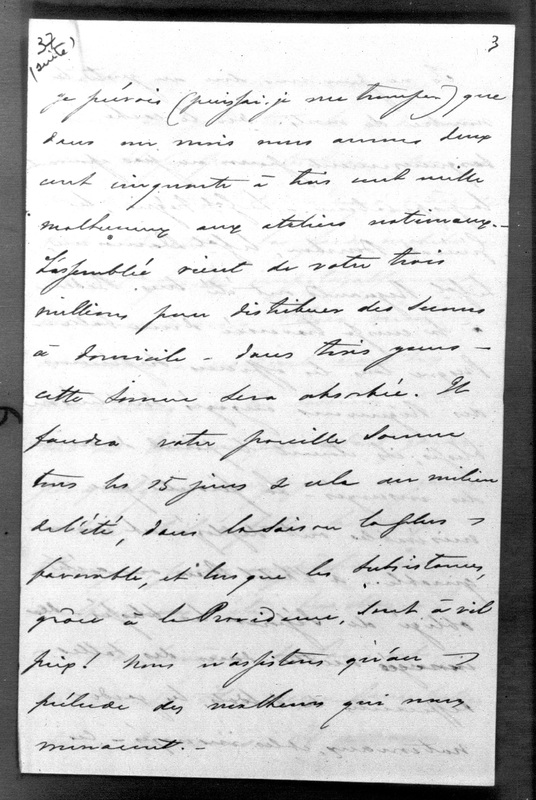 37
(suite)
3
je prévois (puissai-je me tromper) que
dans un mois nous aurons deux
cent cinquante à trois cent mille
malheureux aux ateliers nationaux.–
L'assemblée vient de voter trois
millions pour distribuer des secours
à domicile – dans trois jours –
cette somme sera absorbée. Il
faudra voter pareille somme
tous les 15 jours & cela au milieu
de l'été, dans la saison la plus
favorable, et lorsque les subsistances,
grâce à la Providence, sont à vil
prix! nous n'assistons qu'au
prélude des malheurs qui nous
menacent.–